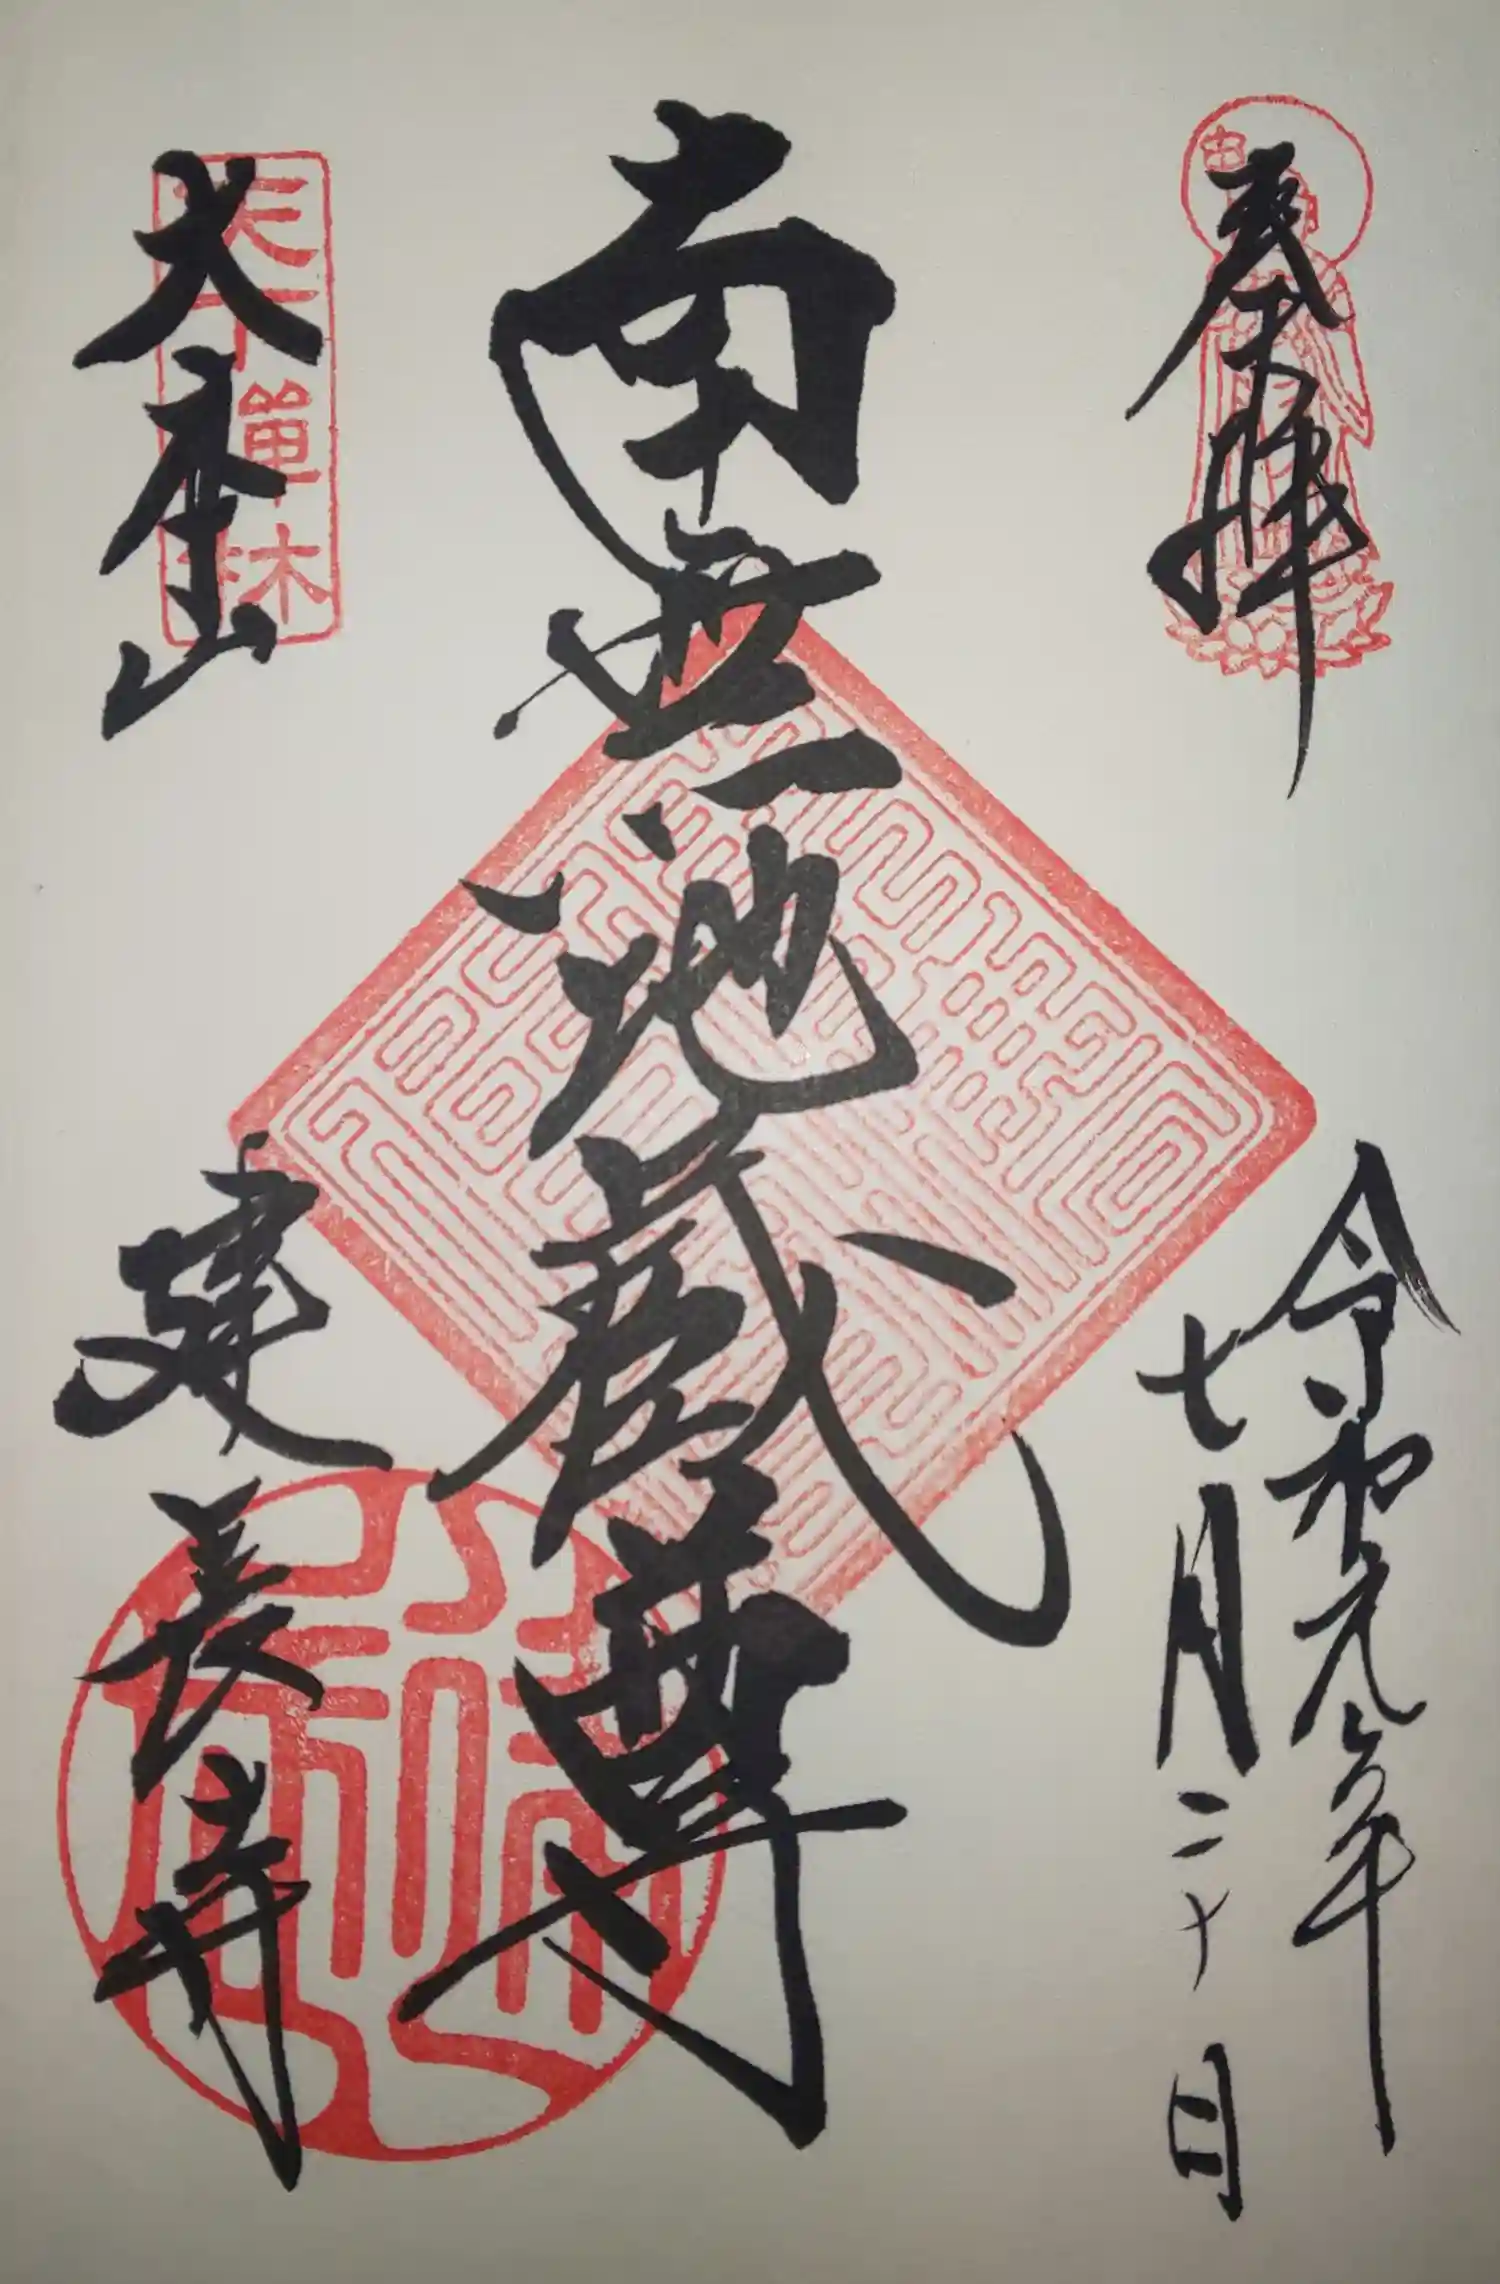 奉拝
令和元年
七月二十日
南無地蔵尊
天下禅林
建長寺